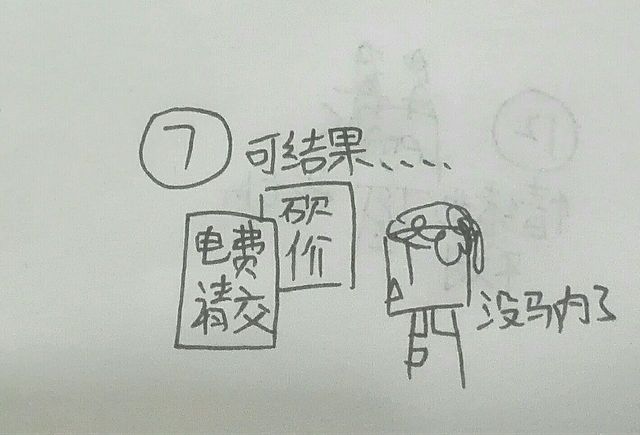 7
可结果....
砍价
电费
请交
没马内了